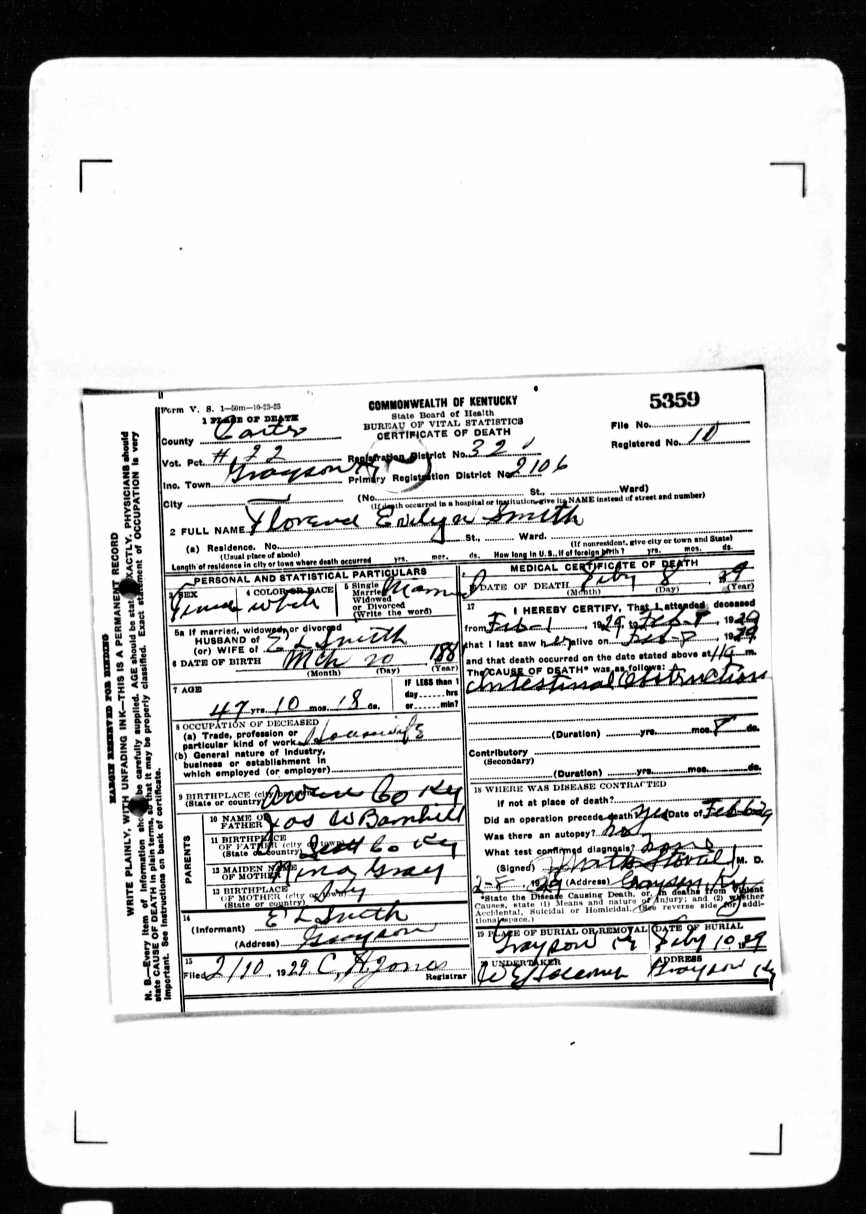 MARGIN RESERVED FOR BINDING
WRITE PLAINLY, WITH UNFADING INK—THIS IS A PERMANENT RECORD
N. B.—Every item of information should be carefully supplied. AGE should be stated EXACTLY. PHYSICIANS should
state CAUSE OF DEATH in plain terms, so that it may be properly classified. Exact statement of OCCUPATION is very
important. See instructions on back of certificate.
Form V. S. 1—50m—10-23-23
COMMONWEALTH OF KENTUCKY
State Board of Health
BUREAU OF VITAL STATISTICS
CERTIFICATE OF DEATH
5359
1 PLACE OF DEATH
County Carter
File No.
Registered No. 10
Vot. Pct. # 22
Registration District No. 320
Inc. Town Grayson Ky
Primary Registration District No. 2106
City (No. St., Ward)
(If death occurred in a hospital or institution, give its NAME instead of street and number)
2 FULL NAME Evelyn Smith
(a) Residence. No. St., Ward.
(Usual place of abode) (If nonresident, give city or town and State)
Length of residence in city or town where death occurred yrs. mos. ds. How long in U. S., if of foreign birth? yrs. mos. ds.
PERSONAL AND STATISTICAL PARTICULARS
3 SEX Female
4 COLOR OR RACE White
5 Single Married Widowed or Divorced (Write the word) Married
5a If married, widowed, or divorced
HUSBAND of
(or) WIFE of E L Smith
6 DATE OF BIRTH Mch 20 188
(Month) (Day) (Year)
7 AGE
47 yrs. 10 mos. 18 ds.
IF LESS than 1
day hrs
or min?
8 OCCUPATION OF DECEASED
(a) Trade, profession or
particular kind of work Housewife
(b) General nature of industry,
business or establishment in
which employed (or employer)
9 BIRTHPLACE (city or town)
(State or country) Owen Co Ky
PARENTS
10 NAME OF
FATHER Jas W Barnhill
11 BIRTHPLACE
OF FATHER (city or town)
(State or country) Scott Co Ky
12 MAIDEN NAME
OF MOTHER Nina Gray
13 BIRTHPLACE
OF MOTHER (city or town)
(State or country) Ky
14
(Informant) E L Smith
(Address) Grayson
15
Filed 2/10, 1929 C. H. Jones
Registrar
MEDICAL CERTIFICATE OF DEATH
DATE OF DEATH Feby 8, 29
(Month) (Day) (Year)
17 I HEREBY CERTIFY, That I attended deceased
from Feb-1 1929, to Feb-8, 1929
that I last saw her alive on Feb-8, 1929
and that death occurred on the date stated above at m.
The CAUSE OF DEATH* was as follows:
Intestinal Obstruction
(Duration) yrs. mos. 8 ds.
Contributory
(Secondary)
(Duration) yrs. mos. ds.
18 WHERE WAS DISEASE CONTRACTED
If not at place of death?
Did an operation precede death? yes Date of Feb 6 29
Was there an autopsy? no
What test confirmed diagnosis?
(Signed) Stovall, M. D.
2-8, 1929 (Address) Grayson Ky
*State the Disease Causing Death, or, in deaths from Violent
Causes, state (1) Means and nature of Injury; and (2) whether
Accidental, Suicidal or Homicidal. (See reverse side for addi-
tional space.)
19 PLACE OF BURIAL OR REMOVAL Grayson Ky
DATE OF BURIAL Feby 10, 29
20 UNDERTAKER W E
ADDRESS Grayson Ky